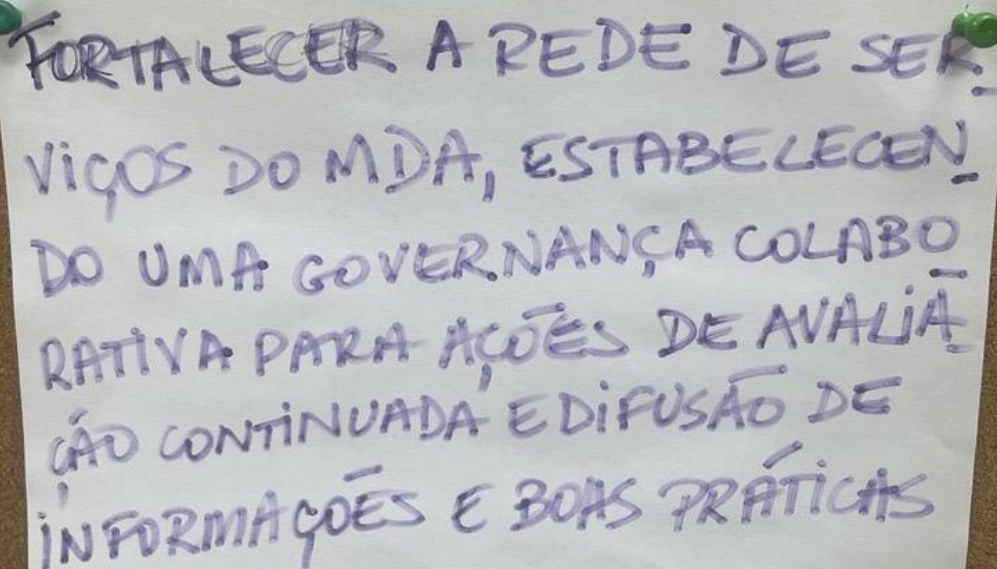 FORTALECER A REDE DE SER-
VIÇOS DO MDA, ESTABELECEN
DO UMA GOVERNANÇA COLABO
RATIVA PARA AÇÕES DE AVALIA
ÇÃO CONTINUADA E DIFUSÃO DE
INFORMAÇÕES E BOAS PRÁTICAS